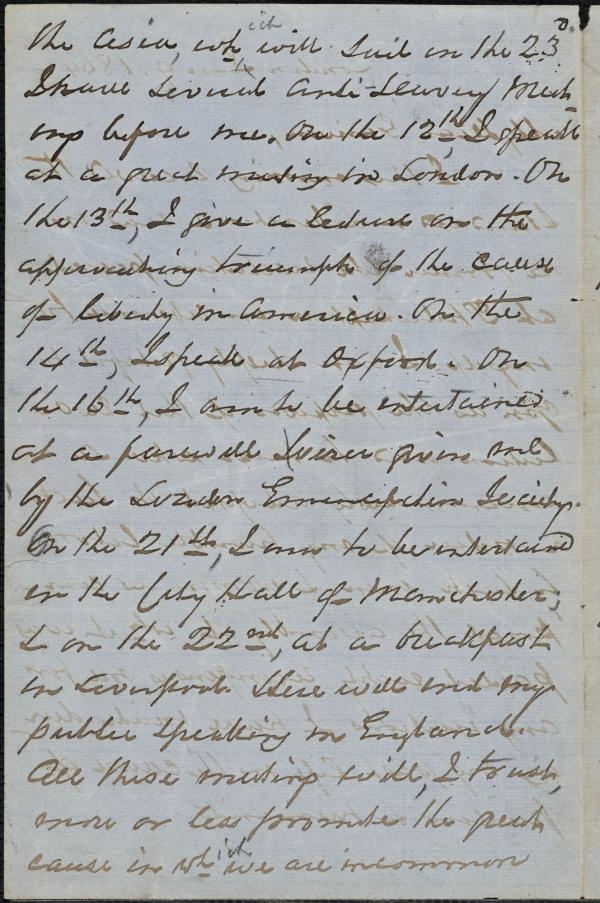 the Asia, which will sail on the 23
I have several Anti-Slavery Meet-
ings before me. On the 12th, I speak
at a great meeting in London. On
the 13th, I give a lecture on the
approaching triumph of the cause
of liberty in America. On the
14th, I speak at Oxford. On
the 16th, I am to be entertained
at a farewell Soiree given me
by the London Emancipation Society.
On the 21th, I am to be entertained
in the City Hall of Manchester;
& on the 22nd, at a breakfast
in Liverpool. Here will end my
public speaking in England.
All these meetings will, I trust,
more or less promote the great
cause in which we are in common